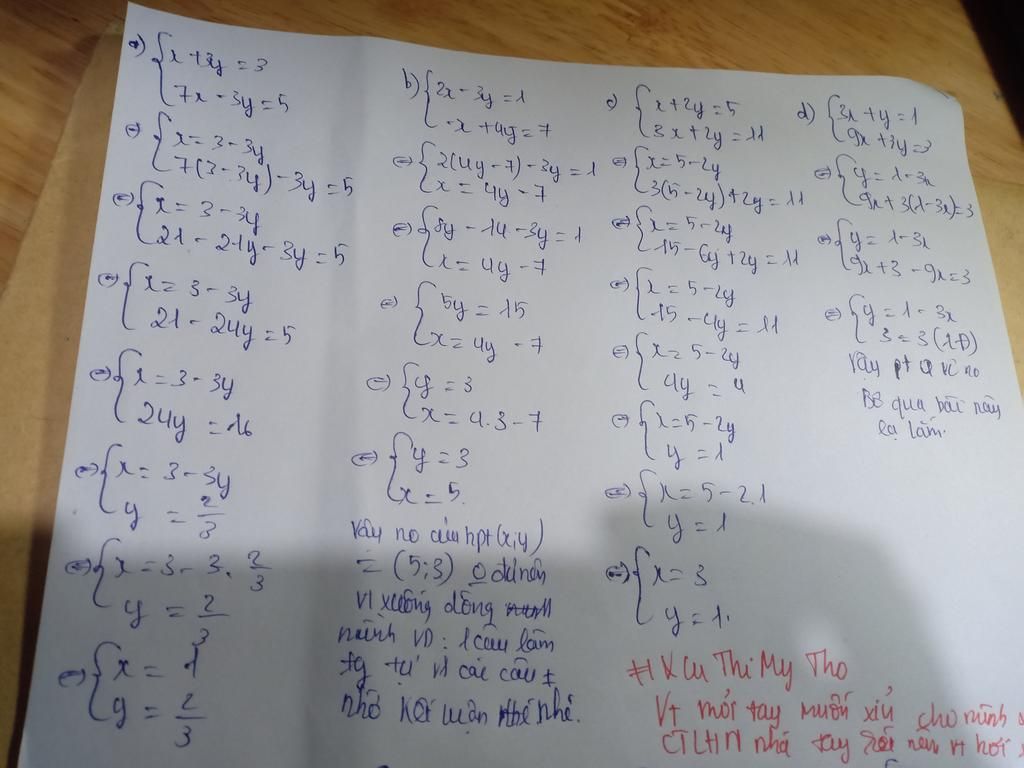 a) { x + 3y = 3
7x - 3y = 5
⇔ { x = 3 - 3y
7(3 - 3y) - 3y = 5
⇔ { x = 3 - 3y
21 - 21y - 3y = 5
⇔ { x = 3 - 3y
21 - 24y = 5
⇔ { x = 3 - 3y
24y = 16
⇔ { x = 3 - 3y
y = 2/3
⇔ { x = 3 - 3. 2/3
y = 2/3
⇔ { x = 1
y = 2/3
b) { 2x - 3y = 1
-x + 4y = 7
⇔ { 2(4y - 7) - 3y = 1
x = 4y - 7
⇔ { 8y - 14 - 3y = 1
x = 4y - 7
⇔ { 5y = 15
x = 4y - 7
⇔ { y = 3
x = 4.3 - 7
⇔ { y = 3
x = 5.
Vậy no của hpt (x;y)
= (5;3)
vì xuống dòng
mình VD: 1 câu làm
tg tự vs các câu +
nhớ kết luận nhé.
c) { x + 2y = 5
3x + 2y = 11
⇔ { x = 5 - 2y
3(5 - 2y) + 2y = 11
⇔ { x = 5 - 2y
15 - 6y + 2y = 11
⇔ { x = 5 - 2y
15 - 4y = 11
⇔ { x = 5 - 2y
4y = 4
⇔ { x = 5 - 2y
y = 1
⇔ { x = 5 - 2.1
y = 1
⇔ { x = 3
y = 1.
d) { 3x + y = 1
9x + 3y = 3
⇔ { y = 1 - 3x
9x + 3(1 - 3x) = 3
⇔ { y = 1 - 3x
9x + 3 - 9x = 3
⇔ { y = 1 - 3x
3 = 3 (LĐ)
Vậy pt có vô no
Bỏ qua bài này
lạ lắm.
# K Cu Thi My Tho
Vt mỏi tay muốn xỉu cho mình
CTLHN nhá tay rồi nên vt hơi